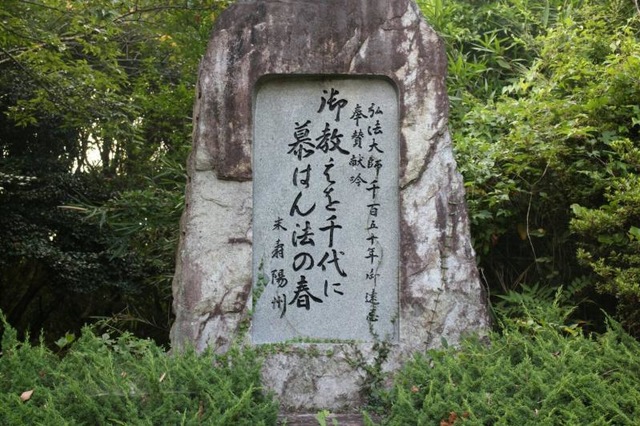 弘法大師千百五十年御遠忌
奉賛献吟
御教えを千代に
慕はん法の春
末翁陽州